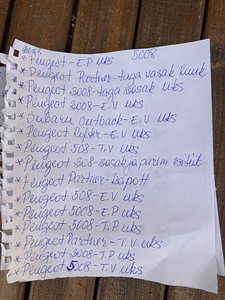 5008
* Peugeot - E.P uks
* Peugeot Partner - taga vasak luuk
* Peugeot 2008 - taga vasak uks
* Peugeot 2008 - E.V uks
* Subaru Outback - E.V uks
* Peugeot Rifter - E.V uks
* Peugeot 508 - T.V uks
* Peugeot 308 - vasak ja parem esitiib
* Peugeot Partner - kapott
* Peugeot 508 - E.V uks
* Peugeot 5008 - E.P uks
* Peugeot 5008 - T.P uks
* Peugeot Partner - T.V uks
* Peugeot 2008 - T.P uks
* Peugeot 5008 - T.V uks